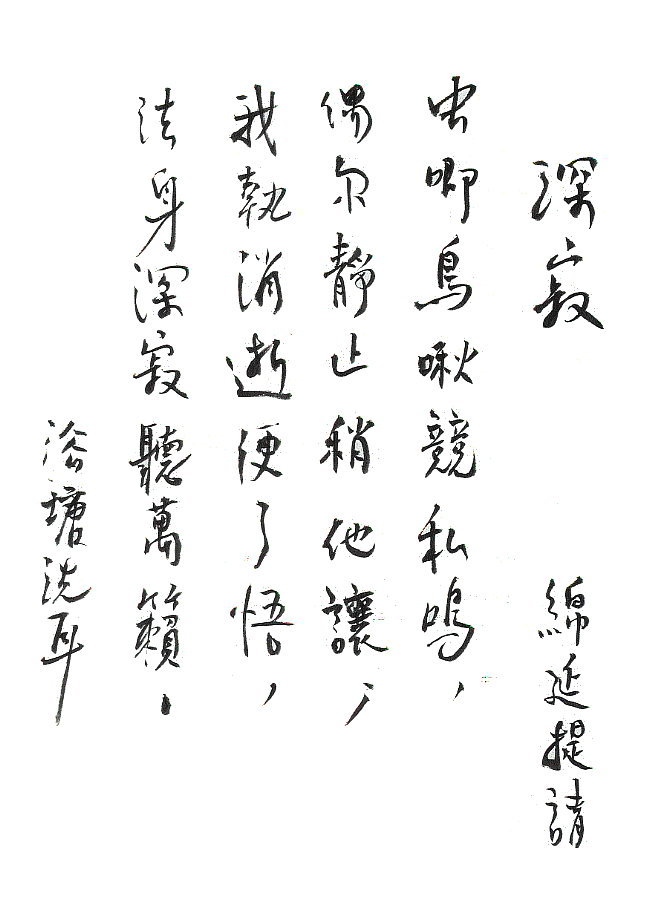 深寂
綿延提請
虫唧鳥啾競私鳴，
偶尔靜止稍他讓，
我執消逝便了悟，
法身深寂聽萬籟．
洗耳